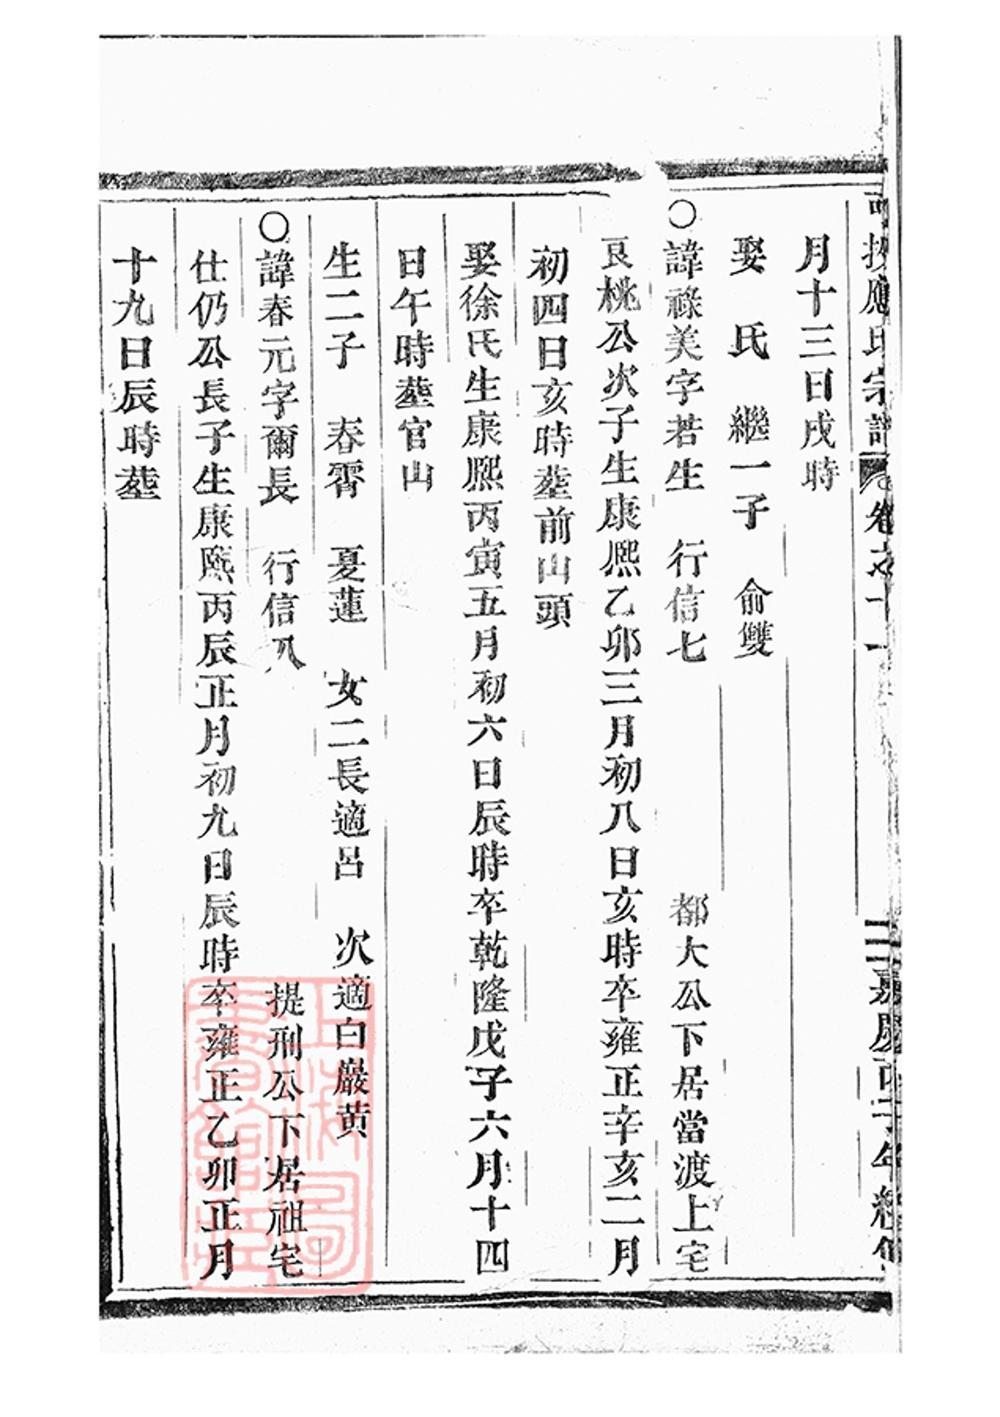 應氏宗譜 卷之十一 二 嘉慶丙子年
月十三日戌時
娶 氏 繼一子 俞雙
○諱祿美字若生 行信七 都大公下居當渡上宅
良桃公次子生康熙乙卯三月初八日亥時卒雍正辛亥二月
初四日亥時塟前山頭
娶徐氏生康熙丙寅五月初六日辰時卒乾隆戊子六月十四
日午時塟官山
生二子 春霄 夏蓮 女二長適呂 次適白巖黄
○諱春元字爾長 行信八 提刑公下居祖宅
仕仍公長子生康熙丙辰正月初九日辰時卒雍正乙卯正月
十九日辰時塟
上海圖書館藏